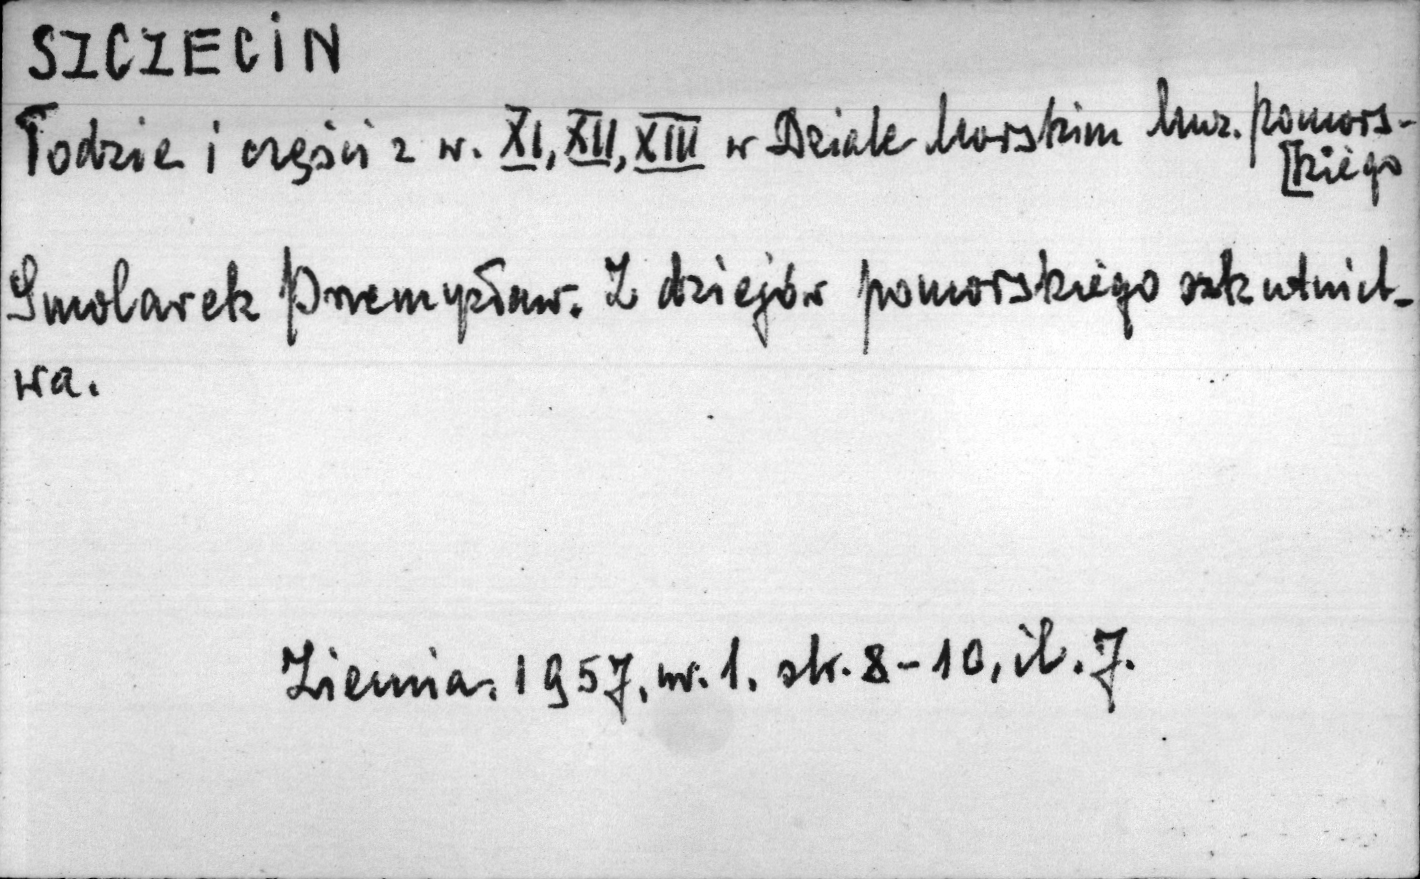 SZCZECIN
Łodzie i części z w. XI, XII, XIII w Dziale Morskim Muz. pomors-
[kiego
Smolarek Przemysław. Z dziejów pomorskiego szkutnict-
wa.
Ziemia. 1957, nr. 1. str. 8-10, il. 7.